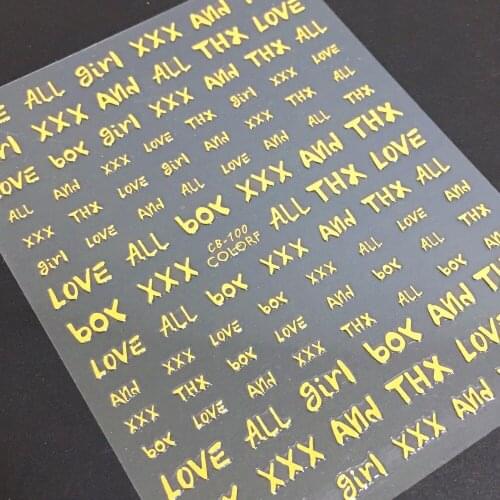 LOVE ALL girl XXX AND
girl XXX AND ALL THX LOVE
LOVE box girl XXX AND ALL THX
ALL AND XXX LOVE THX girl XXX LOVE
XXX THX LOVE girl AND XXX THX ALL
girl LOVE AND ALL LOVE AND XXX THX
LOVE ALL box XXX AND THX
box XXX CB-100 ALL THX LOVE
COLORF
LOVE ALL LOVE box XXX AND
AND XXX box AND LOVE XXX ALL
XXX THX LOVE XXX THX AND box ALL
box LOVE AND ALL girl box AND THX
LOVE ALL XXX AND THX LOVE
girl XXX AND